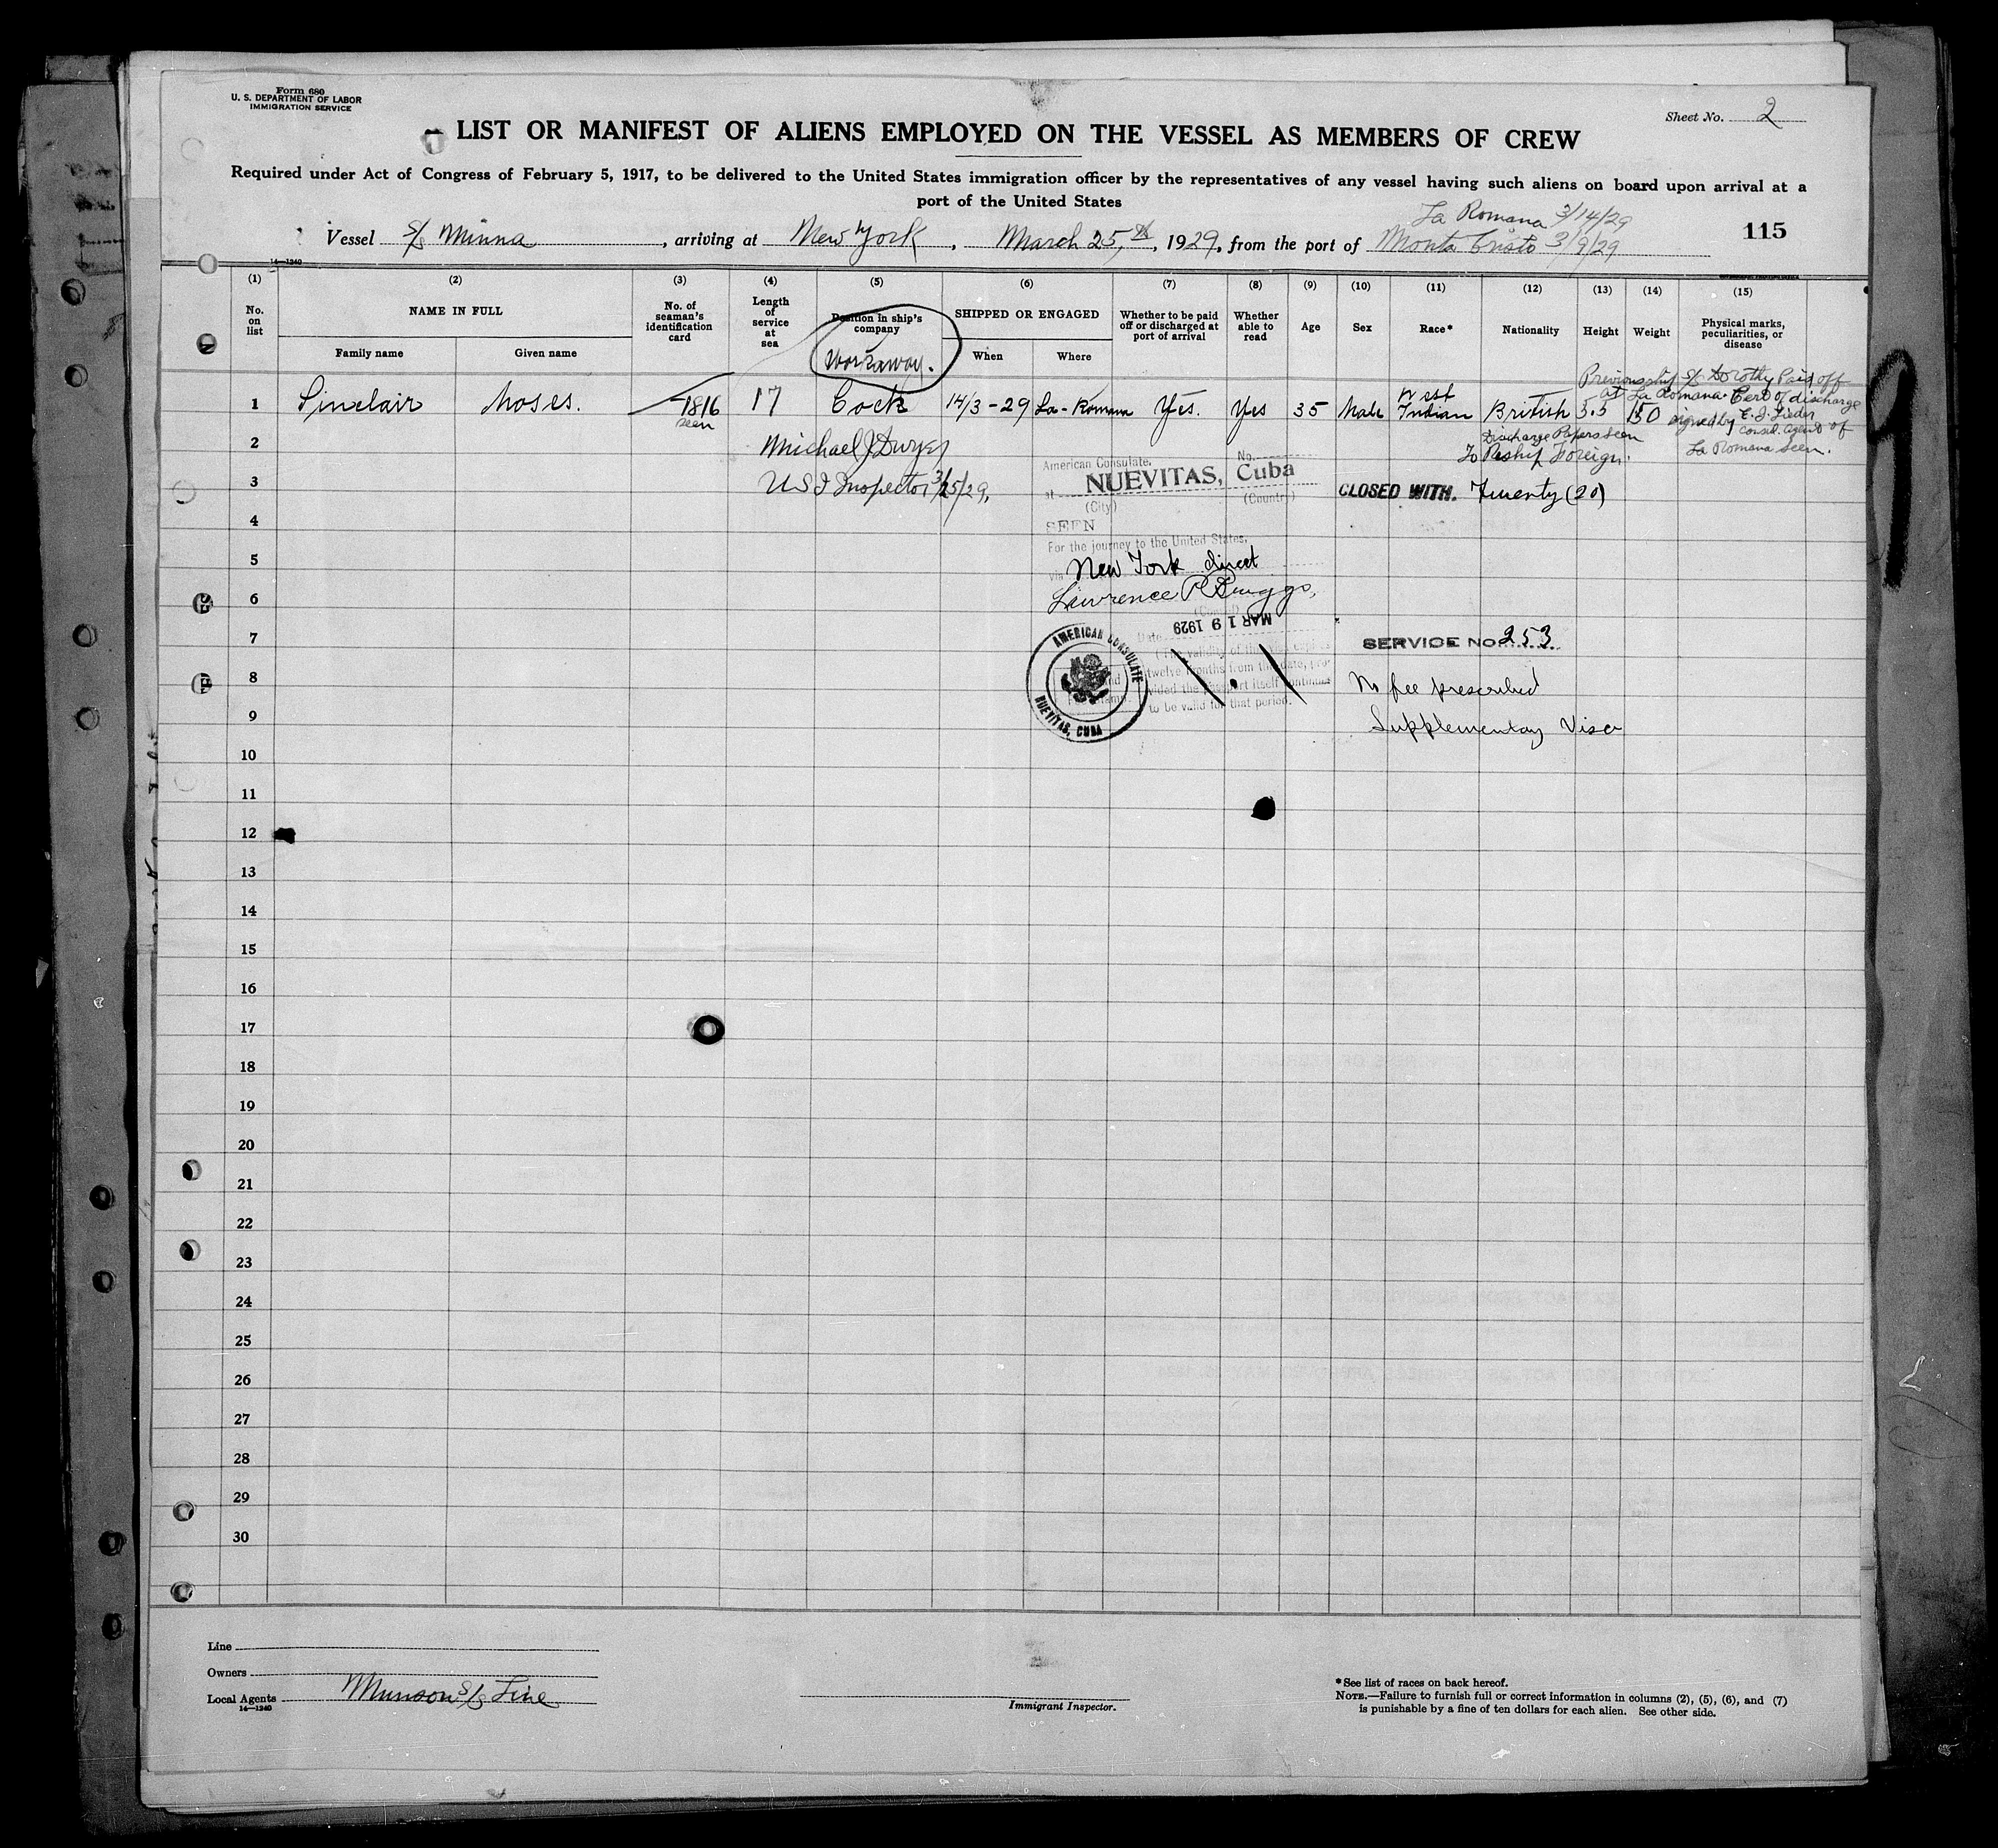 Form 680
U. S. DEPARTMENT OF LABOR
IMMIGRATION SERVICE
Sheet No. 2
LIST OR MANIFEST OF ALIENS EMPLOYED ON THE VESSEL AS MEMBERS OF CREW
Required under Act of Congress of February 5, 1917, to be delivered to the United States immigration officer by the representatives of any vessel having such aliens on board upon arrival at a
port of the United States
La Romana 3/14/29
115
Vessel S/S Minna, arriving at New York, March 25, th, 1929, from the port of Monta Cristo 3/9/29
14—1240
(1) (2) (3) (4) (5) (6) (7) (8) (9) (10) (11) (12) (13) (14) (15)
No. on list
NAME IN FULL
Family name
Given name
No. of seaman's identification card
Length of service at sea
Position in ship's company
Workaway.
SHIPPED OR ENGAGED
When
Where
Whether to be paid off or discharged at port of arrival
Whether able to read
Age
Sex
Race*
Nationality
Height
Weight
Physical marks, peculiarities, or disease
Previous ship S/S Dorothy Paid off
at La Romana. Cert of discharge
1 Sinclair Moses. 1816 seen 17 Cock 14/3-29 La-Romana Yes. Yes 35 Male West Indian British 5.5 150 signed by E. J.
Consul. Agent of
La Romana seen.
Discharge Papers seen
To Reship Foreign.
2 Michael J Dwyer
3 U S I Inspector 3/25/29.
American Consulate,
No.
at NUEVITAS, Cuba
(City) (Country)
CLOSED WITH. Twenty (20)
4
SEEN
For the journey to the United States,
5
via New York direct
6 Lawrence P Briggs,
(Consul)
7
Date MAR 19 1929
SERVICE NO. 253
(The validity of this visa expires
twelve months from this date, pro-
8
vided the passport itself continues
to be valid for that period.
AMERICAN CONSULATE
NUEVITAS, CUBA
No fee prescribed
9
Supplementary Visa
10
11
12
13
14
15
16
17
18
19
20
21
22
23
24
25
26
27
28
29
30
Line
Owners
Local Agents Munson S/S Line
14—1240
Immigrant Inspector.
*See list of races on back hereof.
NOTE.—Failure to furnish full or correct information in columns (2), (5), (6), and (7)
is punishable by a fine of ten dollars for each alien. See other side.